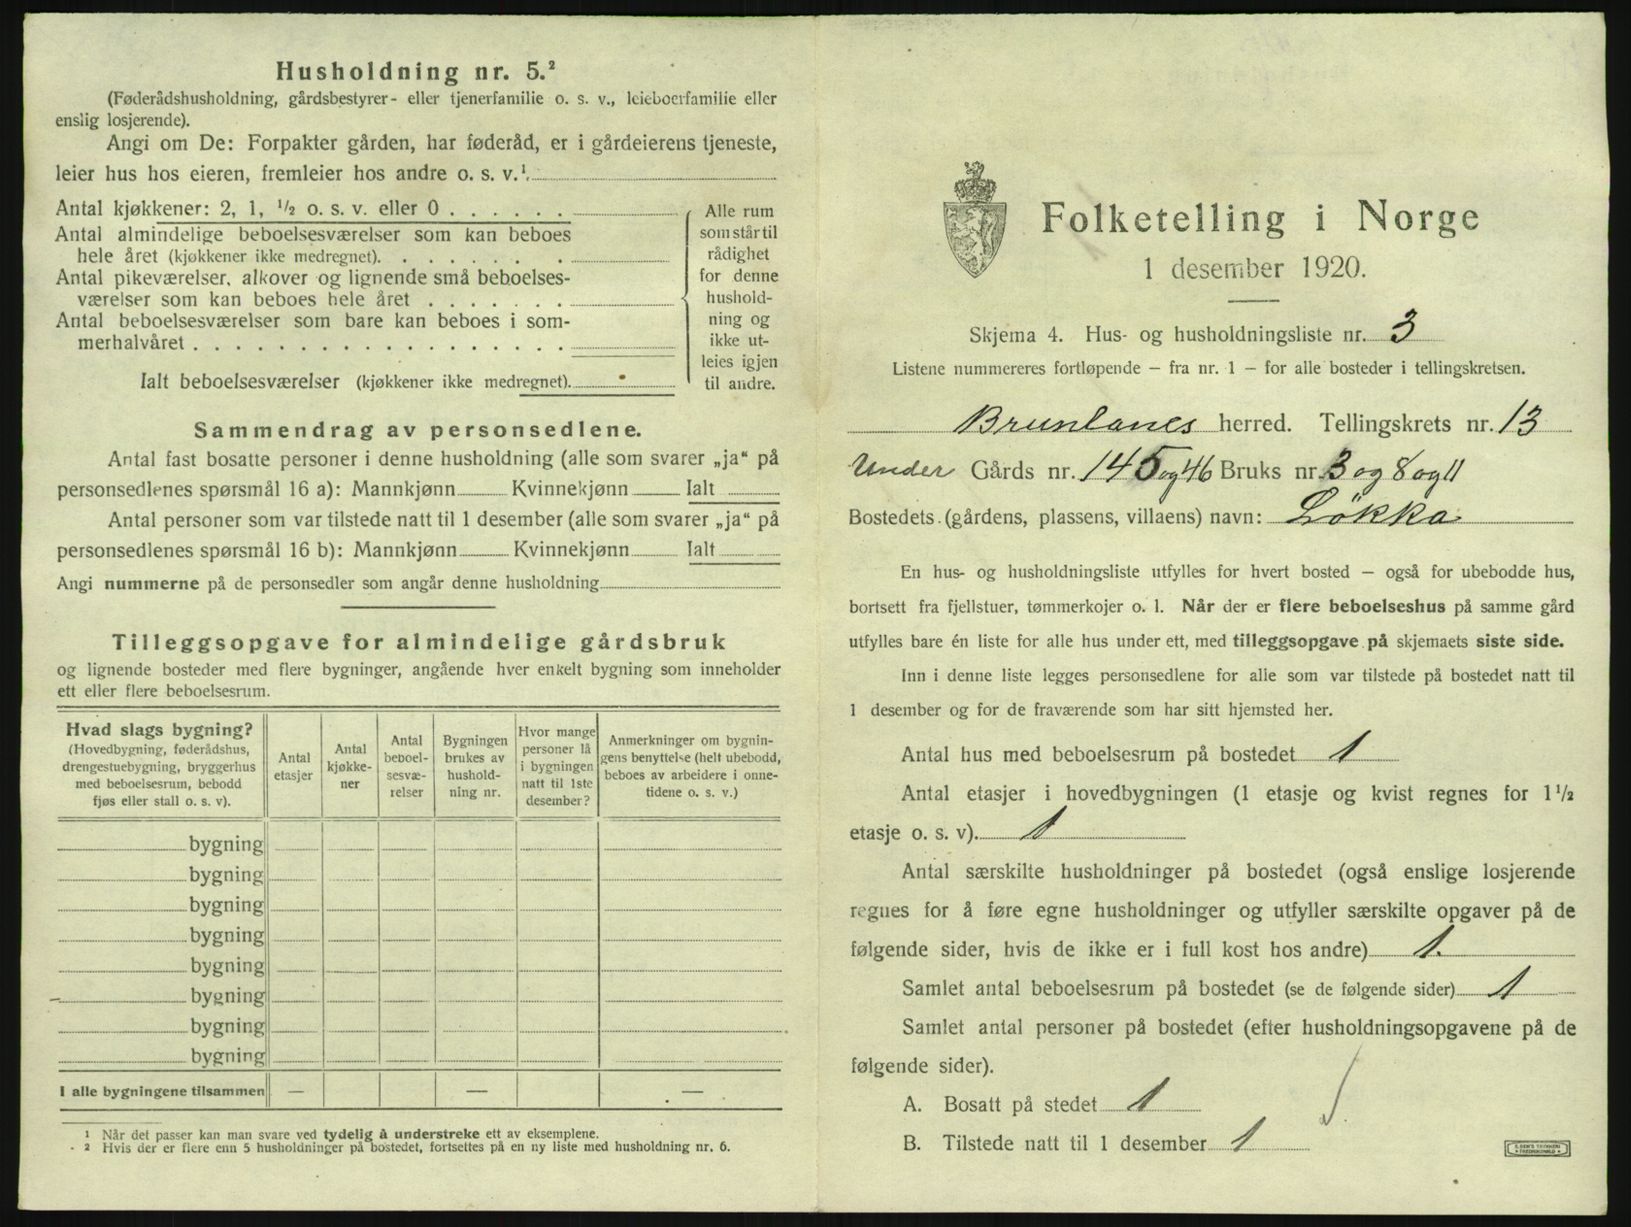 Husholdning nr. 5.²
(Føderådshusholdning, gårdsbestyrer- eller tjenerfamilie o. s. v., leieboerfamilie eller
enslig losjerende).
Angi om De: Forpakter gården, har føderåd, er i gårdeierens tjeneste,
leier hus hos eieren, fremleier hos andre o. s. v.¹
Antal kjøkkener: 2, 1, ½ o. s. v. eller 0 . . . . . .
Antal almindelige beboelsesværelser som kan beboes
hele året (kjøkkener ikke medregnet). . . . . . . .
Antal pikeværelser, alkover og lignende små beboelses-
værelser som kan beboes hele året . . . . . . .
Antal beboelsesværelser som bare kan beboes i som-
merhalvåret . . . . . . . . . . . . . . . . . .
Ialt beboelsesværelser (kjøkkener ikke medregnet).
Alle rum
som står til
rådighet
for denne
hushold-
ning og
ikke ut-
leies igjen
til andre.
Sammendrag av personsedlene.
Antal fast bosatte personer i denne husholdning (alle som svarer „ja“ på
personsedlenes spørsmål 16 a): Mannkjønn Kvinnekjønn Ialt
Antal personer som var tilstede natt til 1 desember (alle som svarer „ja“ på
personsedlenes spørsmål 16 b): Mannkjønn Kvinnekjønn Ialt
Angi nummerne på de personsedler som angår denne husholdning
Tilleggsopgave for almindelige gårdsbruk
og lignende bosteder med flere bygninger, angående hver enkelt bygning som inneholder
ett eller flere beboelsesrum.
Hvad slags bygning?
(Hovedbygning, føderådshus,
drengestuebygning, bryggerhus
med beboelsesrum, bebodd
fjøs eller stall o. s. v).
Antal
etasjer
Antal
kjøkke-
ner
Antal
beboel-
sesvæ-
relser
Bygningen
brukes av
hushold-
ning nr.
Hvor mange
personer lå
i bygningen
natt til 1ste
desember?
Anmerkninger om bygnin-
gens benyttelse (helt ubebodd,
beboes av arbeidere i onne-
tidene o. s. v.)
bygning
bygning
bygning
bygning
bygning
bygning
bygning
bygning
I alle bygningene tilsammen — — —
¹ Når det passer kan man svare ved tydelig å understreke ett av eksemplene.
² Hvis der er flere enn 5 husholdninger på bostedet, fortsettes på en ny liste med husholdning nr. 6.
Folketelling i Norge
1 desember 1920.
Skjema 4. Hus- og husholdningsliste nr. 3
Listene nummereres fortløpende — fra nr. 1 — for alle bosteder i tellingskretsen.
Brunlanes herred. Tellingskrets nr. 13
Under Gårds nr. 145 og 46 Bruks nr. 3 og 8 og 11
Bostedets (gårdens, plassens, villaens) navn: Løkka
En hus- og husholdningsliste utfylles for hvert bosted — også for ubebodde hus,
bortsett fra fjellstuer, tømmerkojer o. l. Når der er flere beboelseshus på samme gård
utfylles bare én liste for alle hus under ett, med tilleggsopgave på skjemaets siste side.
Inn i denne liste legges personsedlene for alle som var tilstede på bostedet natt til
1 desember og for de fraværende som har sitt hjemsted her.
Antal hus med beboelsesrum på bostedet 1
Antal etasjer i hovedbygningen (1 etasje og kvist regnes for 1½
etasje o. s. v). 1
Antal særskilte husholdninger på bostedet (også enslige losjerende
regnes for å føre egne husholdninger og utfyller særskilte opgaver på de
følgende sider, hvis de ikke er i full kost hos andre) 1.
Samlet antal beboelsesrum på bostedet (se de følgende sider) 1
Samlet antal personer på bostedet (efter husholdningsopgavene på de
følgende sider).
A. Bosatt på stedet 1
B. Tilstede natt til 1 desember 1